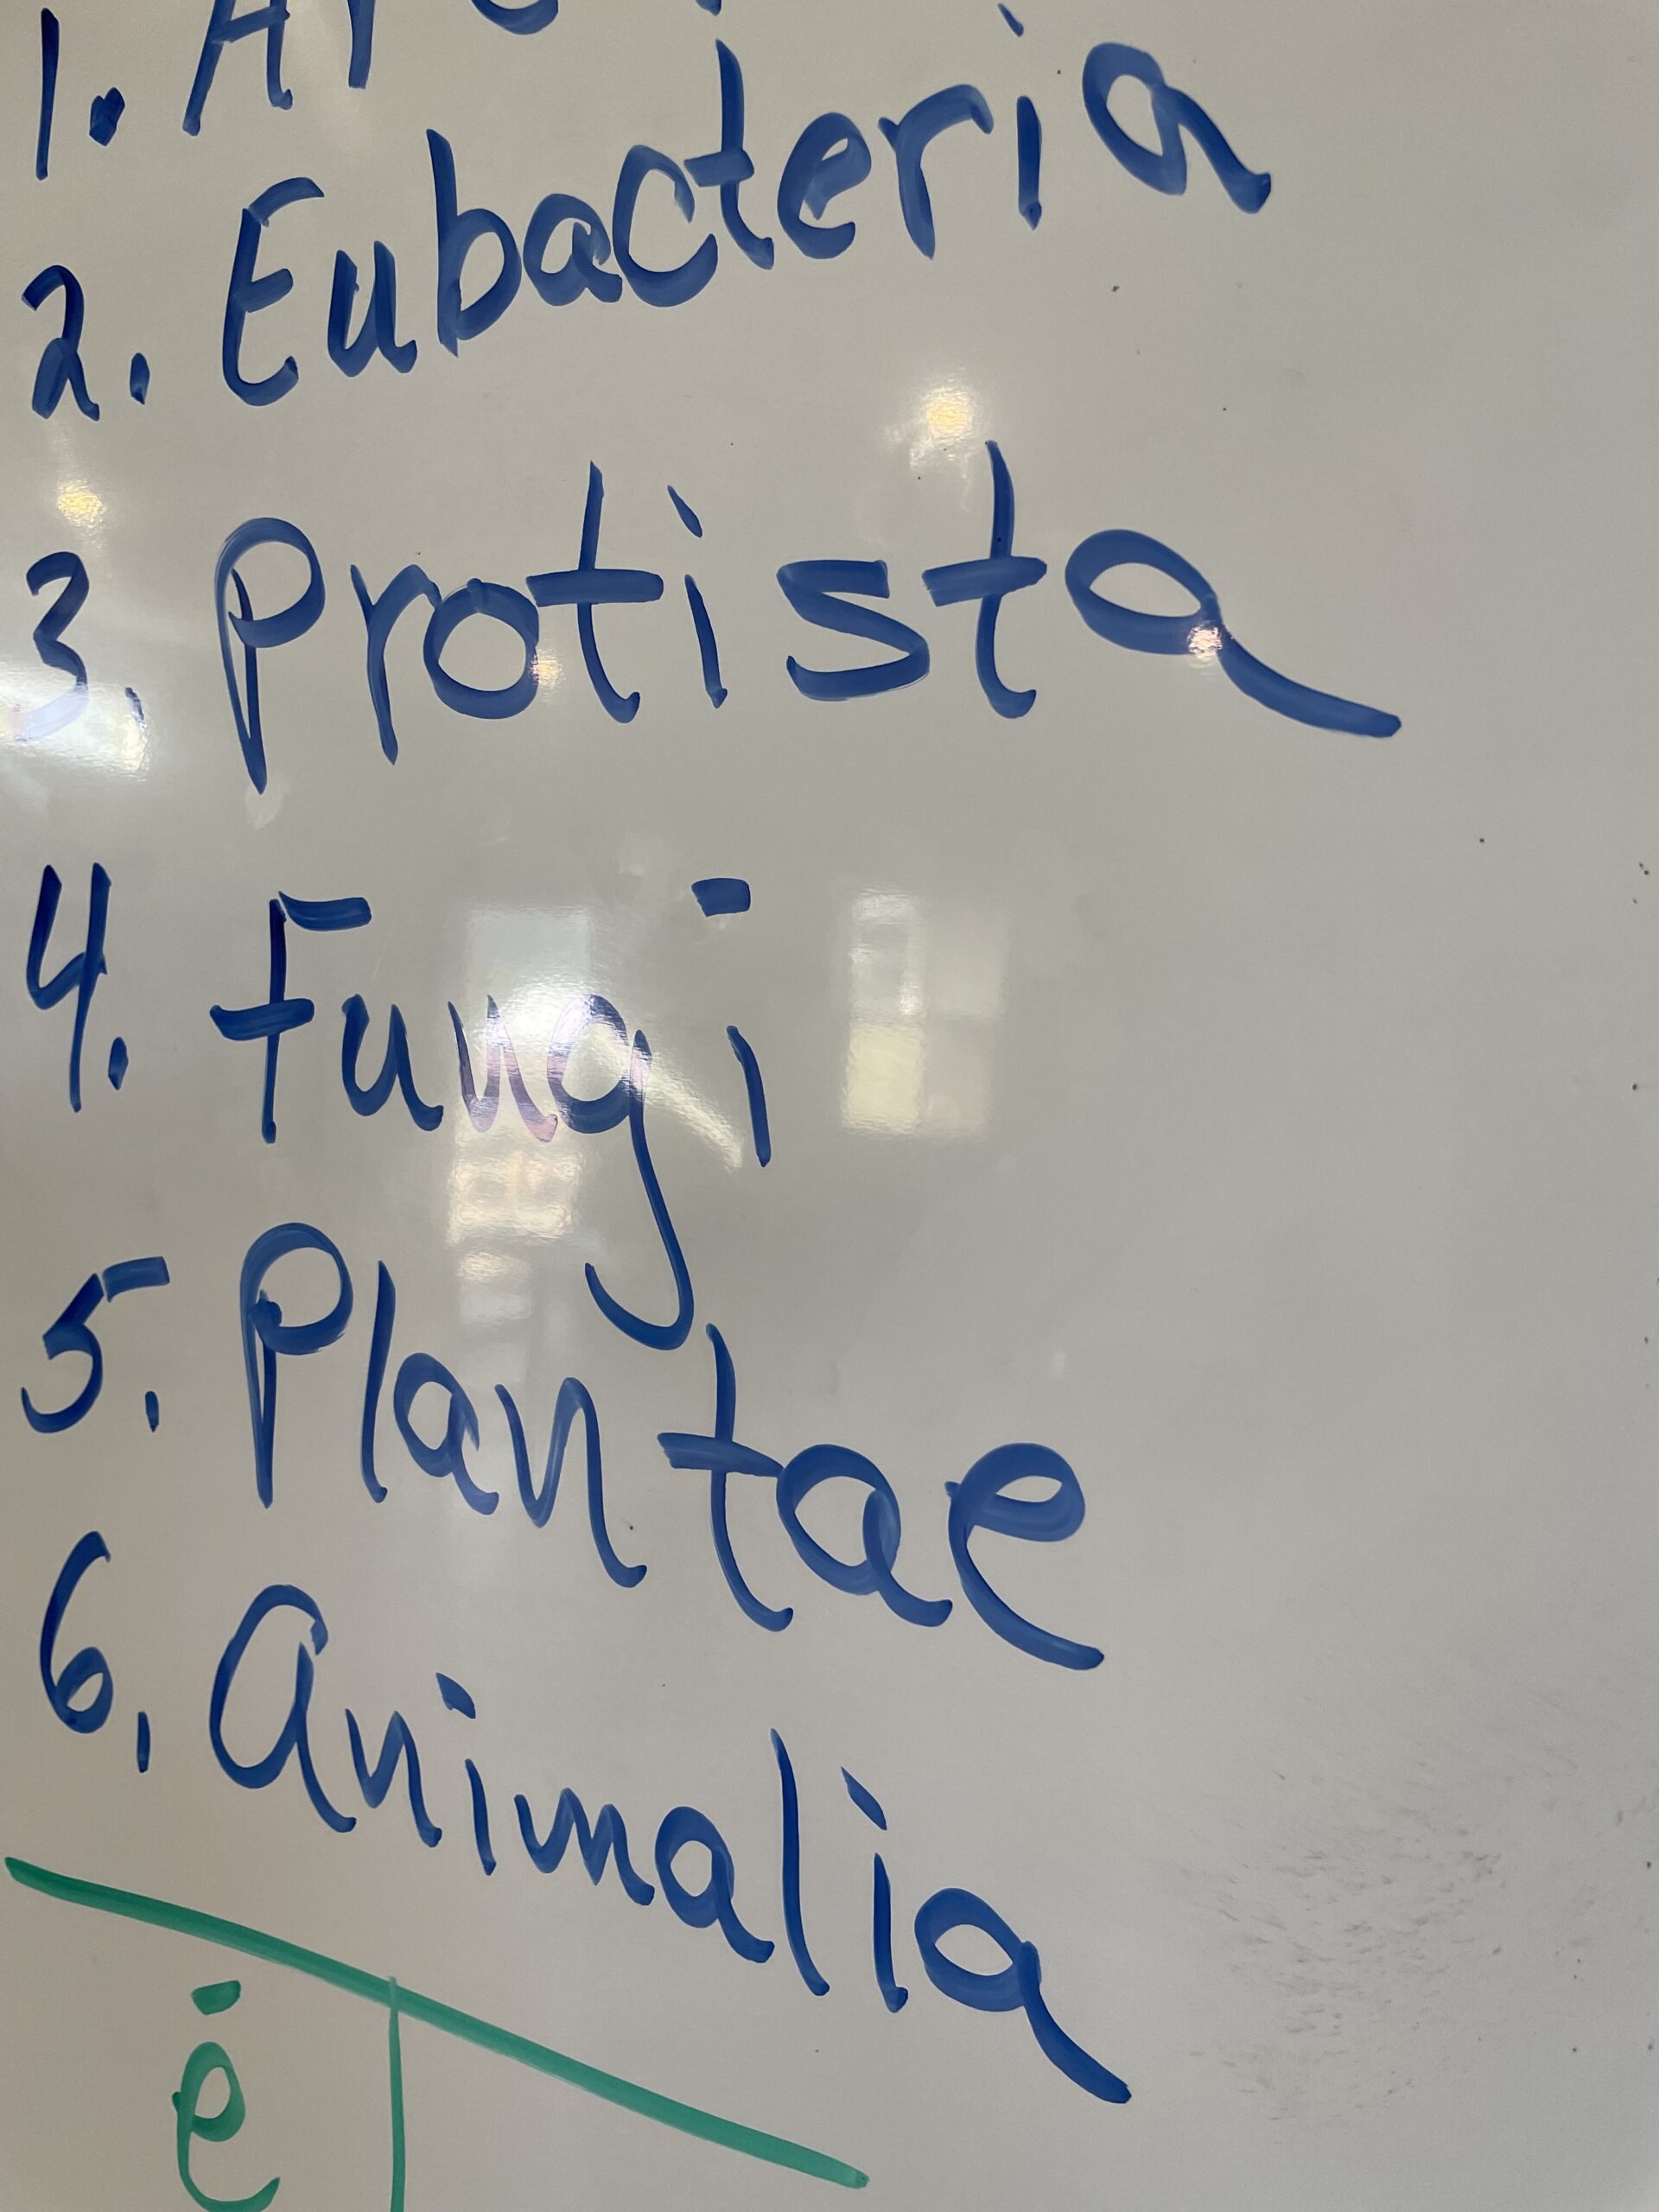 1.
2. Eubacteria
3. Protista
4. Fungi
5. Plantae
6. Animalia
ė